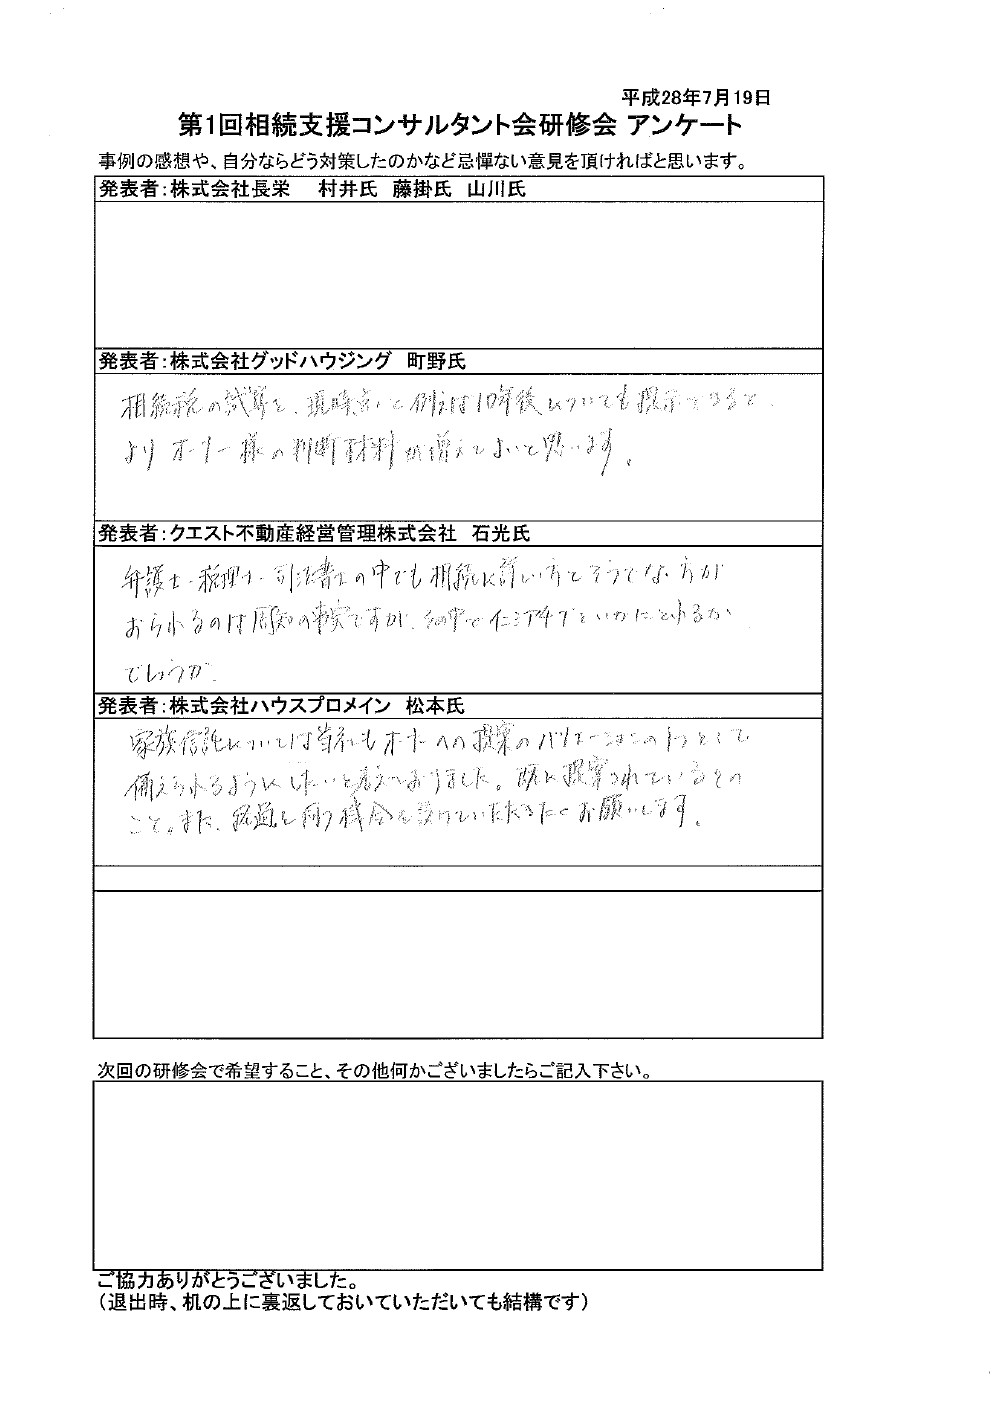 平成28年7月19日
第1回相続支援コンサルタント会研修会 アンケート
事例の感想や、自分ならどう対策したのかなど忌憚ない意見を頂ければと思います。
発表者：株式会社長栄　村井氏　藤掛氏　山川氏
発表者：株式会社グッドハウジング　町野氏
相続税の試算を、現時点と例えば10年後についても提示できると、
よりオーナー様の判断材料が増えてよいと思います。
発表者：クエスト不動産経営管理株式会社　石光氏
弁護士・税理士・司法書士の中でも相続に詳しい方とそうでない方が
おられるのは周知の事実ですが、その中でイニシアチブをいかにとれるか
でしょうか。
発表者：株式会社ハウスプロメイン　松本氏
家族信託については当社もオーナーへの提案のバリエーションの1つとして
備えられるようにしたいと考えておりました。既に提案されているとの
こと。また、経過を伺う機会を設けていただきたくお願いします。
次回の研修会で希望すること、その他何かございましたらご記入下さい。
ご協力ありがとうございました。
（退出時、机の上に裏返しておいていただいても結構です）